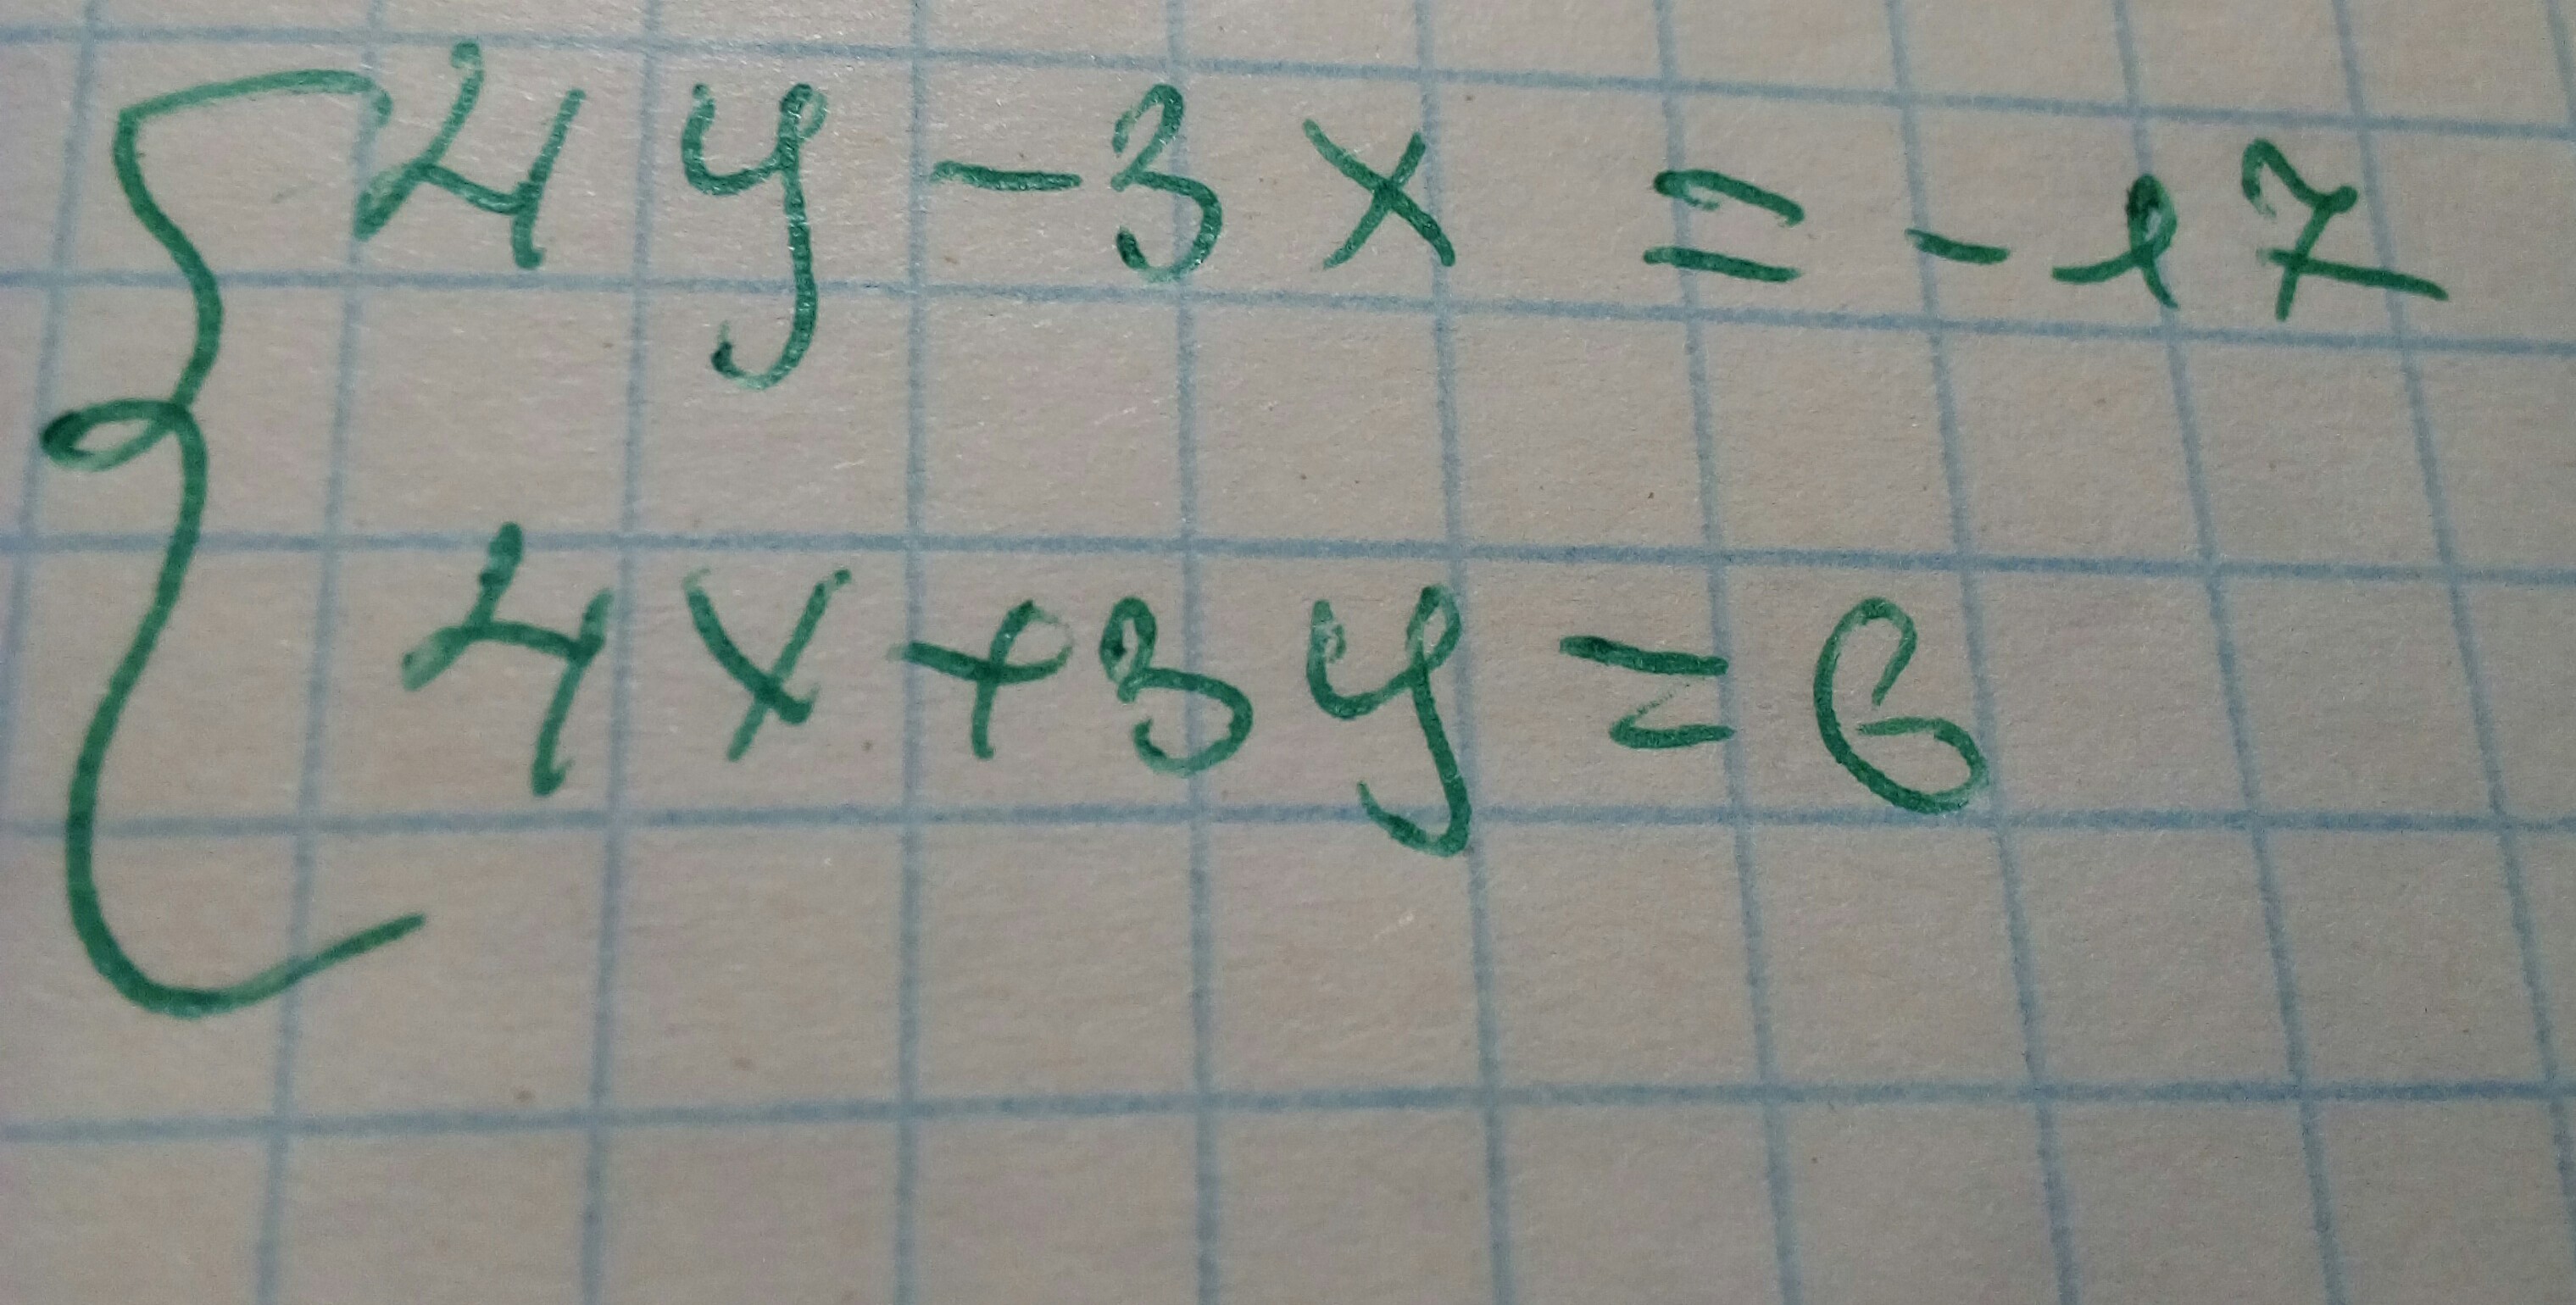 4y - 3x = -17
4x + 3y = 6